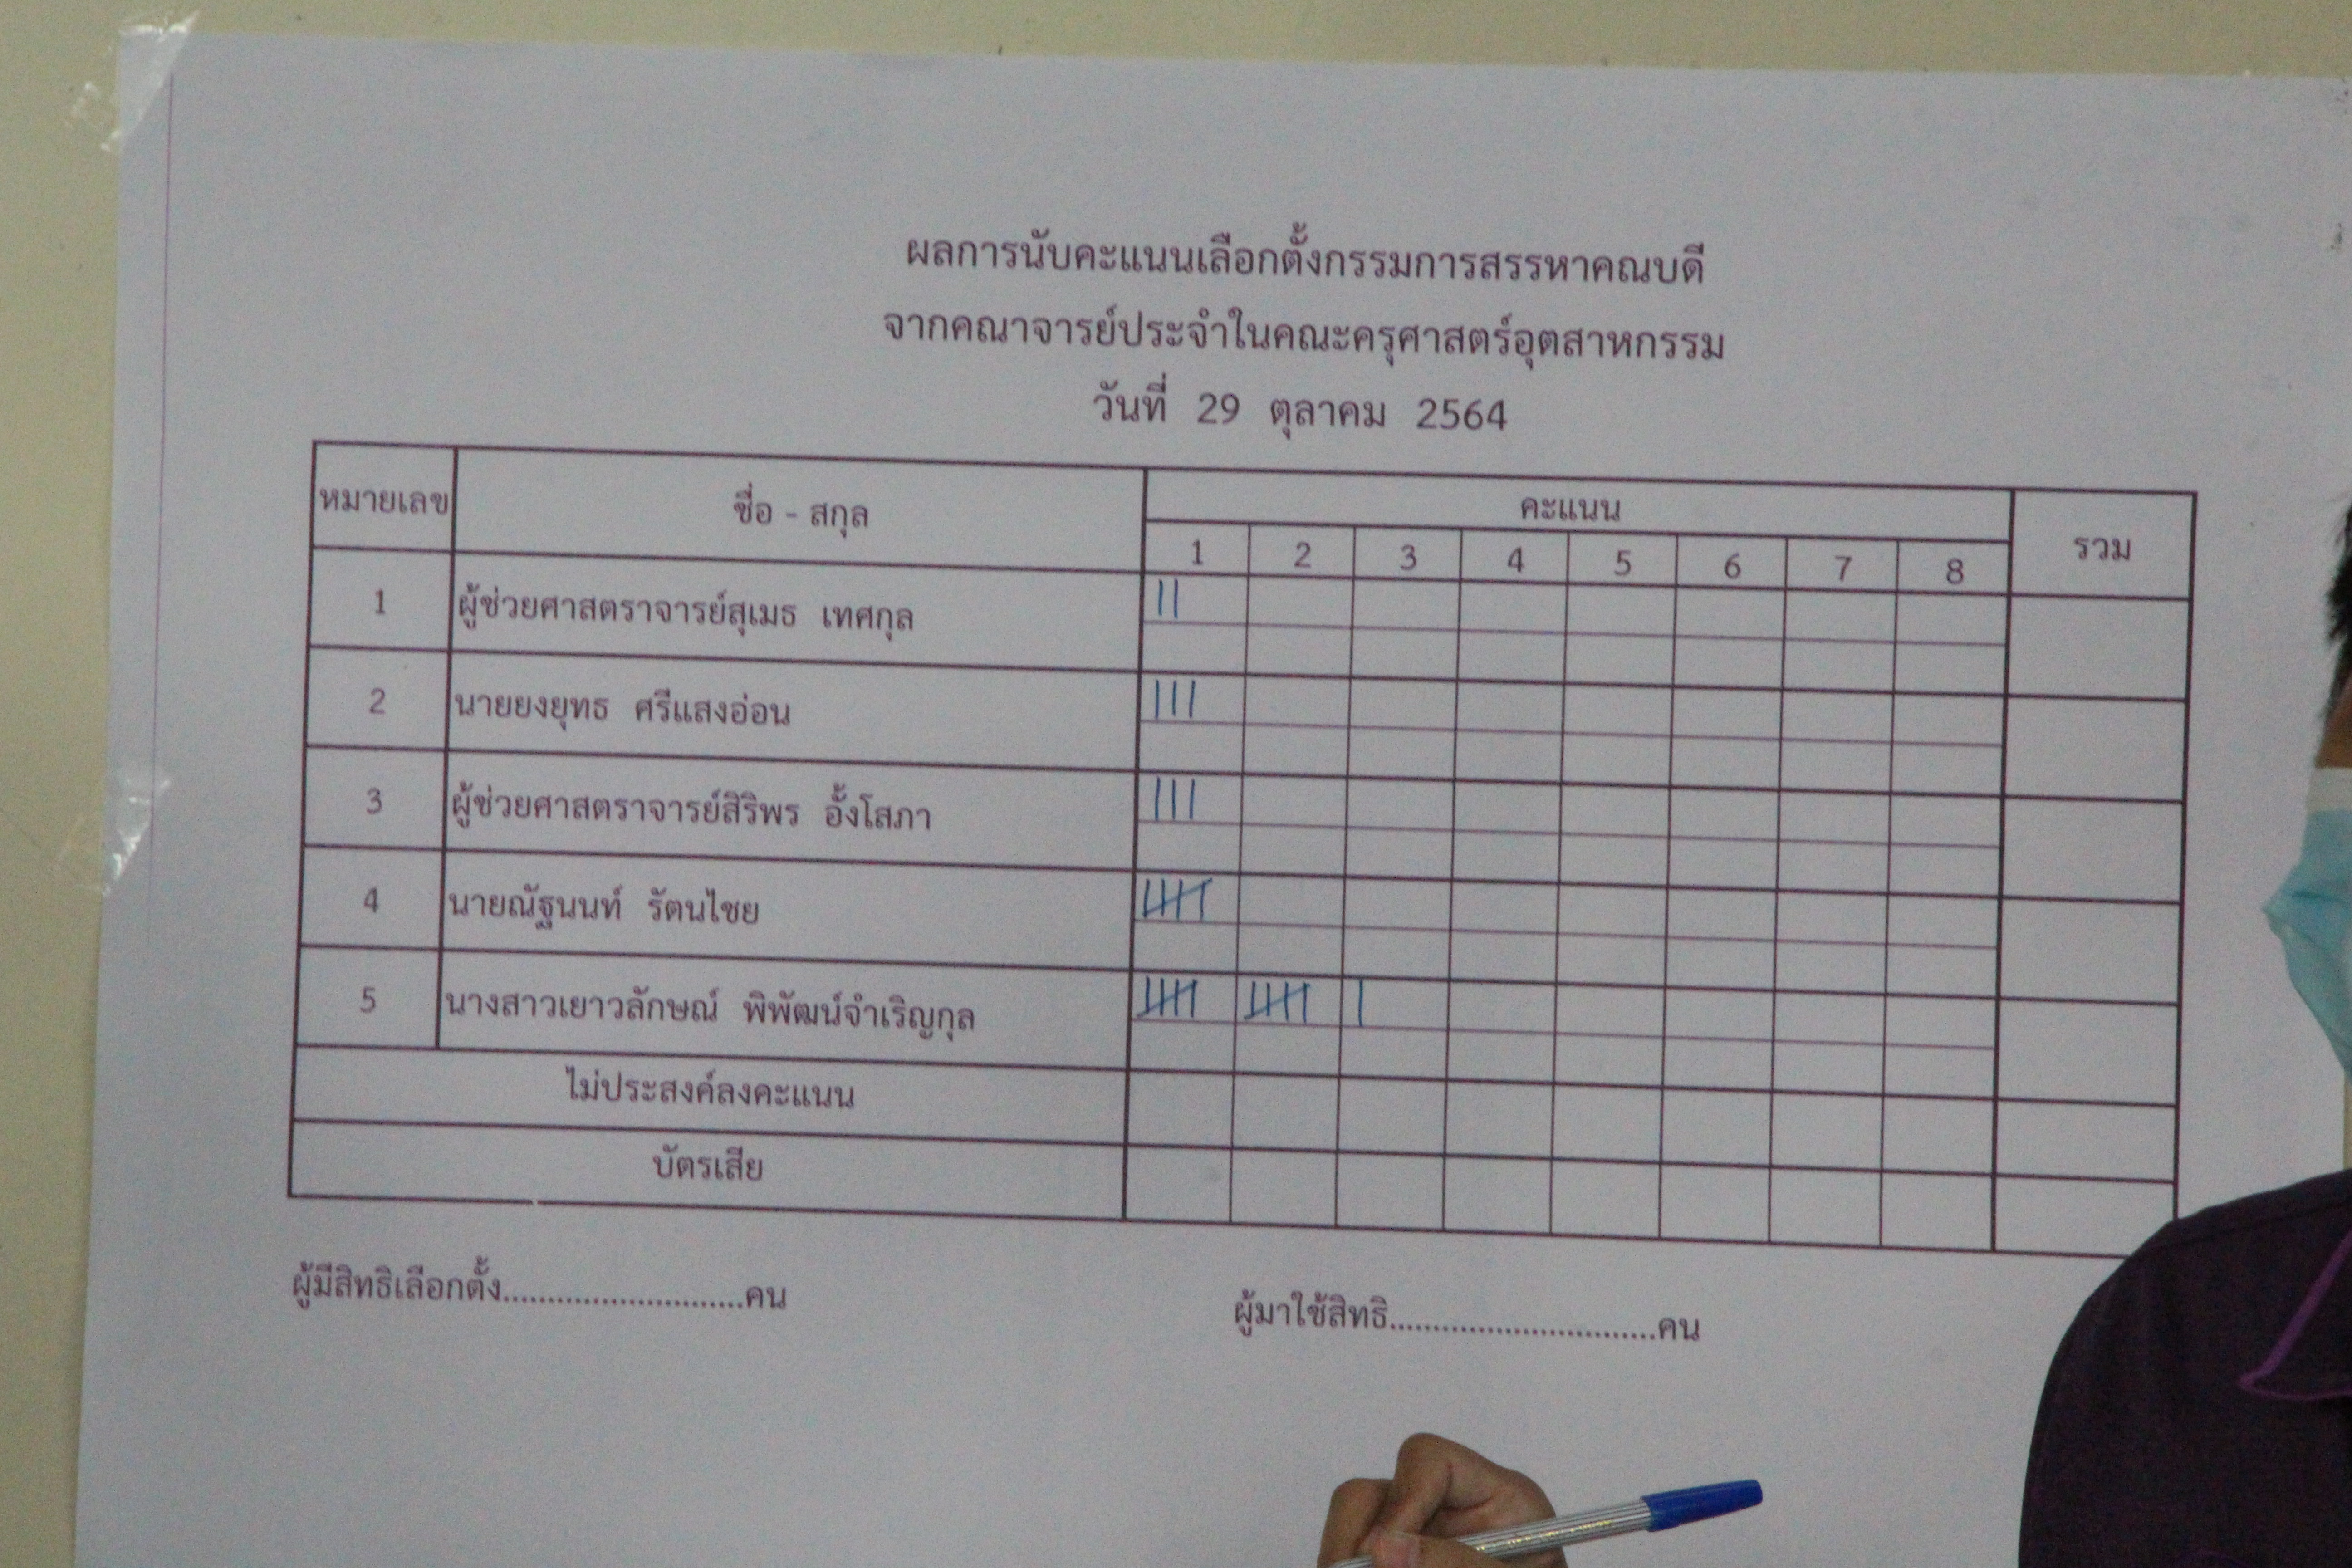 ผลการนับคะแนนเลือกตั้งกรรมการสรรหาคณบดี
จากคณาจารย์ประจำในคณะครุศาสตร์อุตสาหกรรม
วันที่ 29 ตุลาคม 2564
หมายเลข ชื่อ - สกุล คะแนน รวม
1 2 3 4 5 6 7 8
1 ผู้ช่วยศาสตราจารย์สุเมธ เทศกุล
2 นายยงยุทธ ศรีแสงอ่อน
3 ผู้ช่วยศาสตราจารย์สิริพร อั้งโสภา
4 นายณัฐนนท์ รัตนไชย
5 นางสาวเยาวลักษณ์ พิพัฒน์จำเริญกุล
ไม่ประสงค์ลงคะแนน
บัตรเสีย
ผู้มีสิทธิเลือกตั้ง...........................คน ผู้มาใช้สิทธิ..............................คน